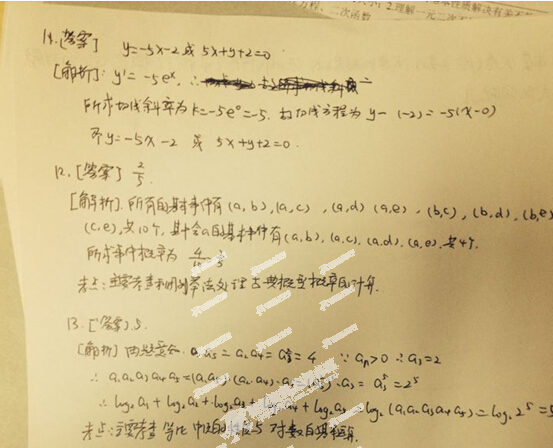 方程、二次函数
2.理解一元二次
14.[答案] y=-5x-2 或 5x+y+2=0.
[解析]: y'=-5eˣ, ∴
所求切线斜率为 k=-5e⁰=-5. 故切线方程为 y-(-2)=-5(x-0)
即 y=-5x-2 或 5x+y+2=0.
12.[答案] 2/5.
[解析]. 所有的基本事件有 (a,b),(a,c),(a,d)(a,e),(b,c),(b,d),(b,e)
(c,e),共10个, 其中含a的基本事件有(a,b).(a,c).(a,d).(a,e).共4个.
所求事件概率为 4/10 = 2/5
考点:主要考查利用列举法处理古典概型概率的计算.
13.[答案].5.
[解析] 由题意知 a₁a₅=a₂a₄=a₃²=4 ∵ aₙ>0 ∴a₃=2
∴ a₁a₂a₃a₄a₅=(a₁a₅)·(a₂·a₄)·a₃=(a₃²)²·a₃=a₃⁵=2⁵
∴ log₂a₁+log₂a₂+log₂a₃+log₂a₄+log₂a₅=log₂(a₁a₂a₃a₄a₅)=log₂2⁵=5
考点:主要考查等比中项的性质与对数的运算.